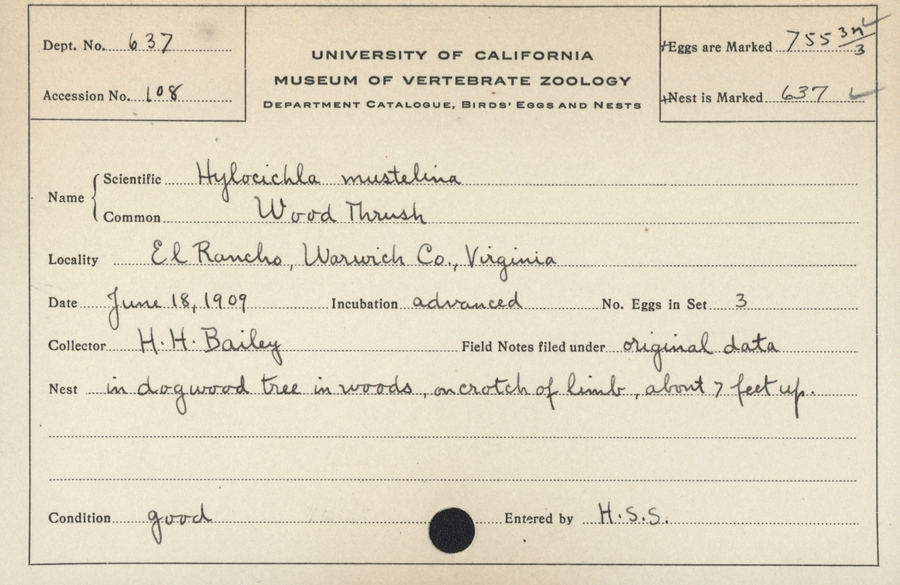 Dept. No. 637
Accession No. 108
UNIVERSITY OF CALIFORNIA
MUSEUM OF VERTEBRATE ZOOLOGY
DEPARTMENT CATALOGUE, BIRDS' EGGS AND NESTS
Eggs are Marked 755 3n/3
Nest is Marked 637
Name
Scientific Hylocichla mustelina
Common Wood Thrush
Locality El Rancho, Warwich Co., Virginia
Date June 18, 1909 Incubation advanced No. Eggs in Set 3
Collector H. H. Bailey Field Notes filed under original data
Nest in dogwood tree in woods, on crotch of limb, about 7 feet up.
Condition good Entered by H.S.S.